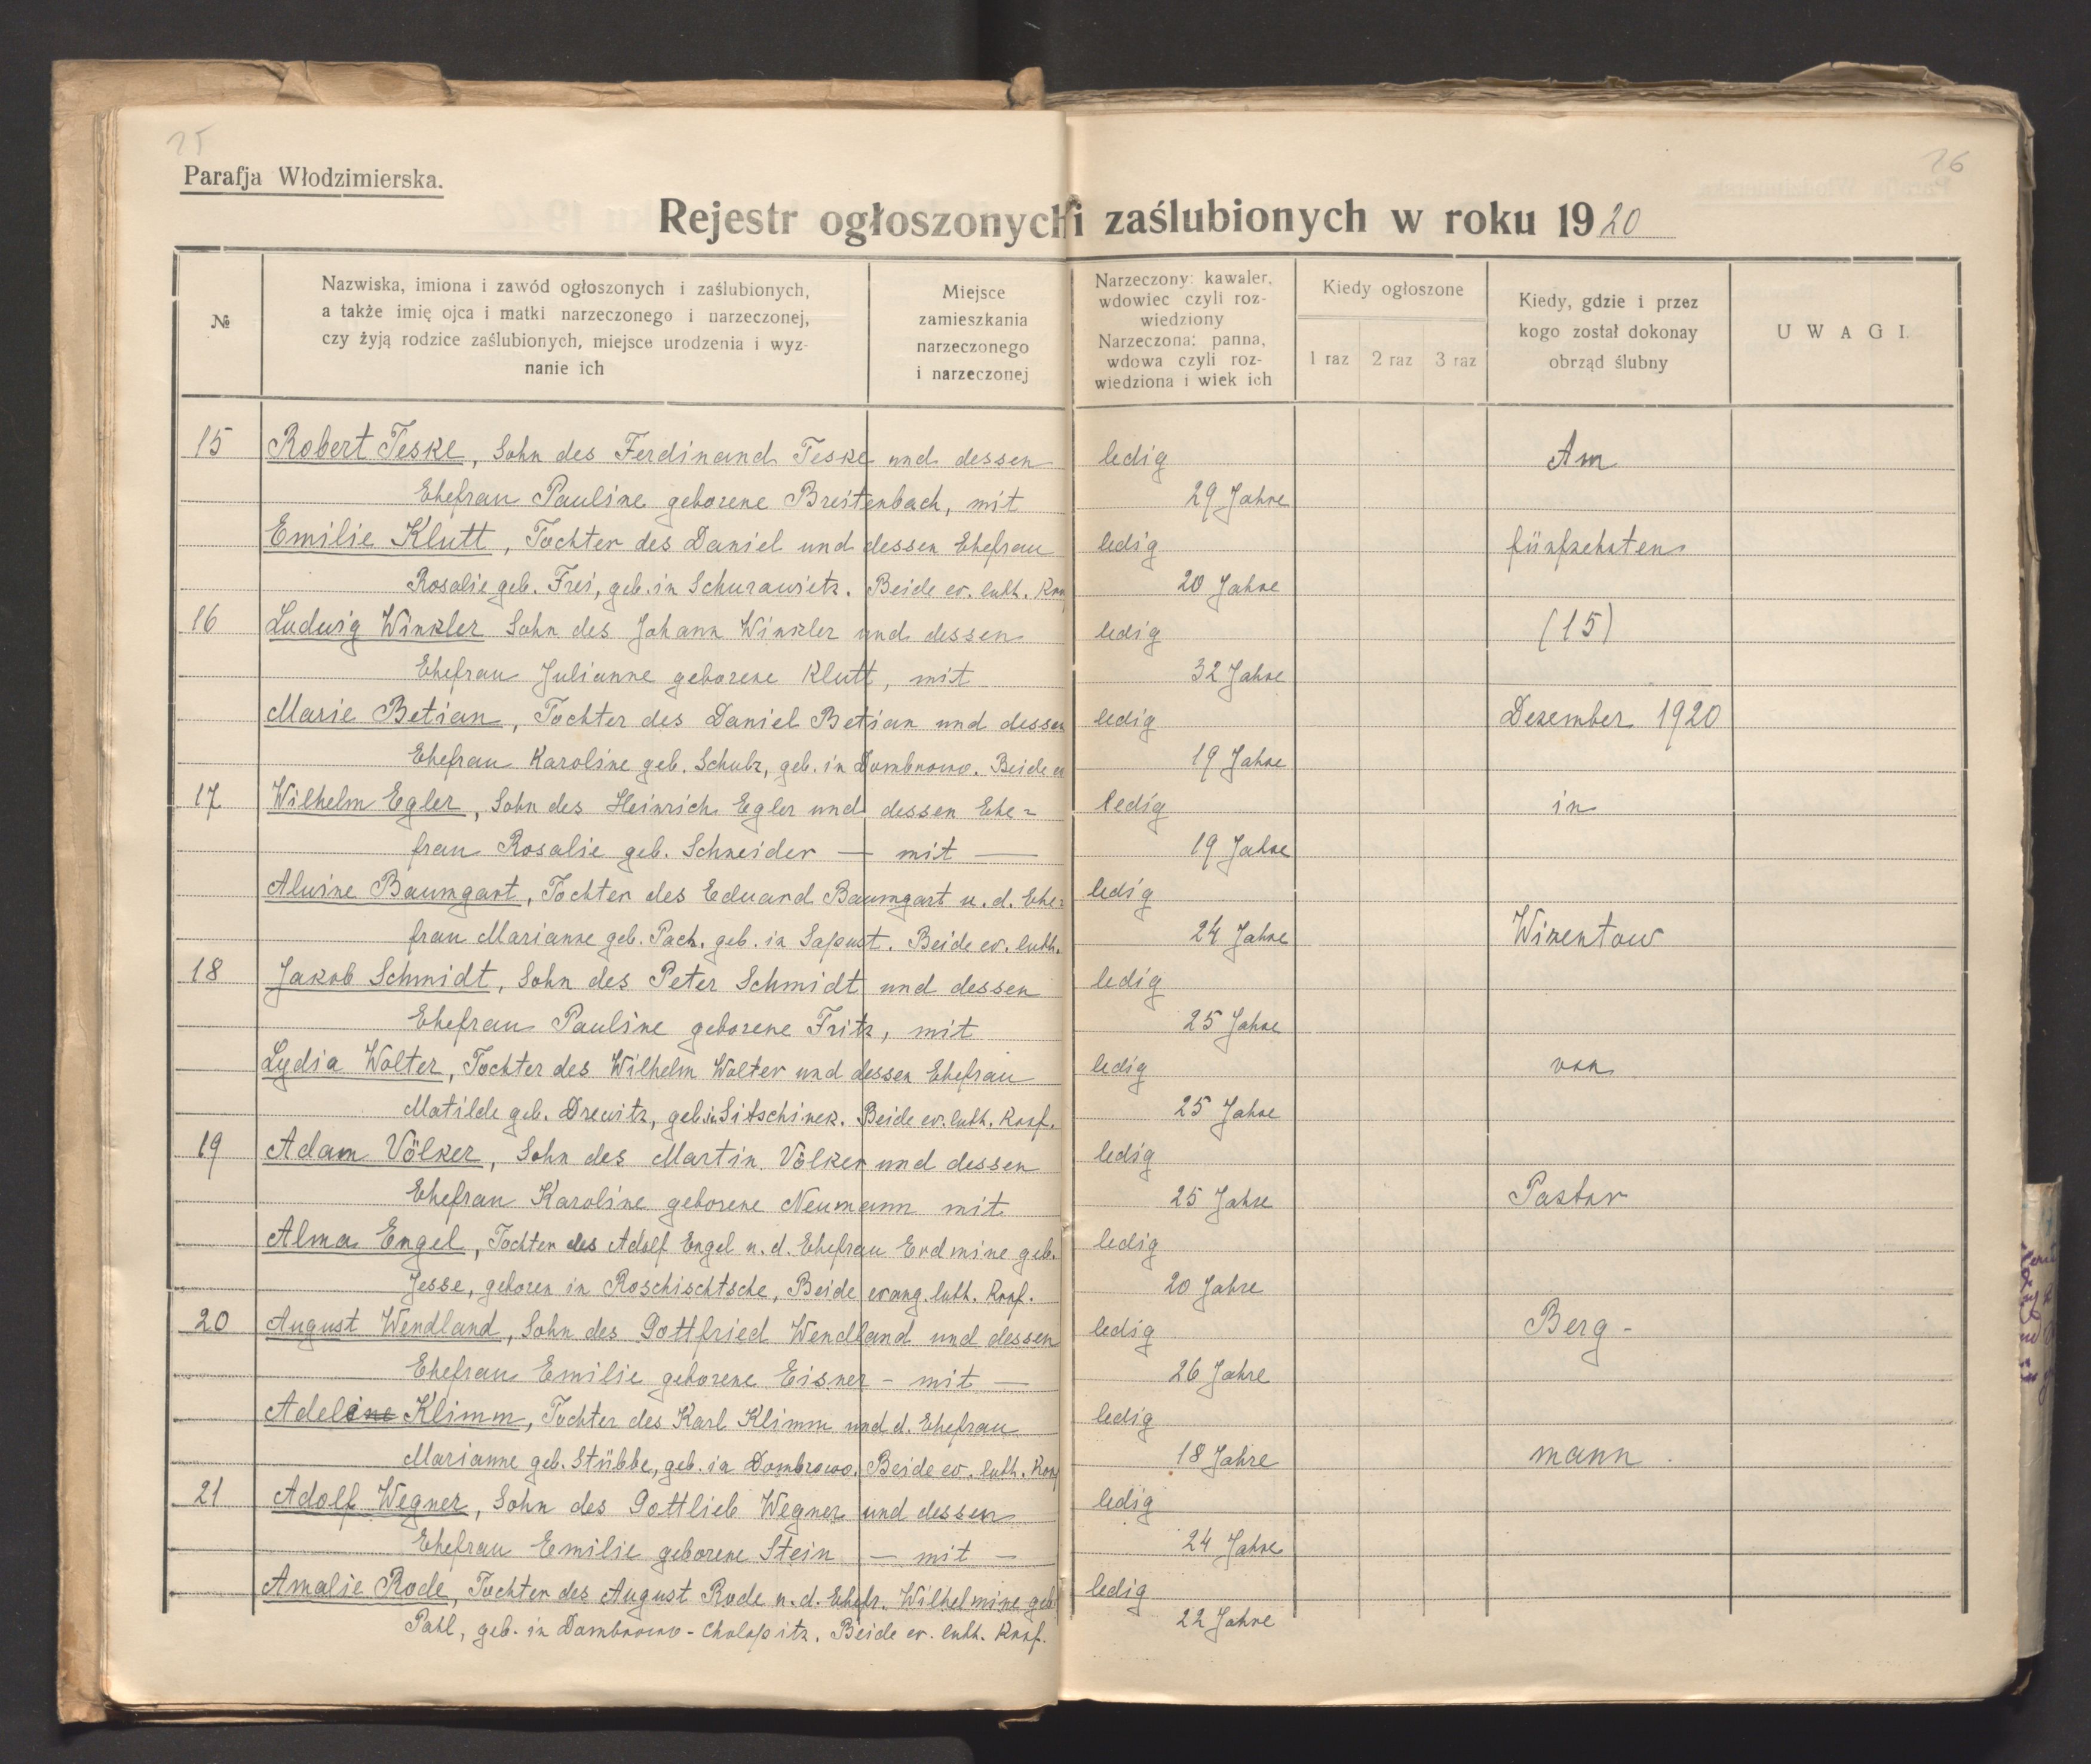 25
26
Parafja Włodzimierska.
Rejestr ogłoszonych i zaślubionych w roku 1920
№
Nazwiska, imiona i zawód ogłoszonych i zaślubionych,
a także imię ojca i matki narzeczonego i narzeczonej,
czy żyją rodzice zaślubionych, miejsce urodzenia i wyz-
nanie ich
Miejsce
zamieszkania
narzeczonego
i narzeczonej
Narzeczony: kawaler,
wdowiec czyli roz-
wiedziony
Narzeczona: panna,
wdowa czyli roz-
wiedziona i wiek ich
Kiedy ogłoszone
1 raz 2 raz 3 raz
Kiedy, gdzie i przez
kogo został dokonay
obrząd ślubny
UWAGI.
15 Robert Teske, Sohn des Ferdinand Teske und dessen ledig Am
Ehefrau Pauline geborene Breitenbach, mit 29 Jahre
Emilie Klutt, Tochter des Daniel und dessen Ehefrau ledig fünfzehnten
Rosalie geb. Frei, geb. in Schurawietz. Beide ev. luth. Kon 20 Jahre
16 Ludwig Winkler Sohn des Johann Winkler und dessen ledig (15)
Ehefrau Julianne geborene Klutt, mit 32 Jahre
Marie Betian, Tochter des Daniel Betian und dessen ledig Dezember 1920
Ehefrau Karoline geb. Schulz, geb. in Dombrowo. Beide ev 19 Jahre
17 Wilhelm Egler, Sohn des Heinrich Egler und dessen Ehe= ledig in
frau Rosalie geb. Schneider — mit — 19 Jahre
Alwine Baumgart, Tochter des Eduard Baumgart u. d. Ehe= ledig
frau Marianne geb. Pach, geb. in Sapust. Beide ev. luth. 24 Jahre Winentow
18 Jakob Schmidt, Sohn des Peter Schmidt und dessen ledig
Ehefrau Pauline geborene Fritz, mit 25 Jahre
Lydia Wolter, Tochter des Wilhelm Wolter und dessen Ehefrau ledig von
Matilde geb. Drewitz, geb. in Sitschinek. Beide ev. luth. Konf. 25 Jahre
19 Adam Völker, Sohn des Martin Völker und dessen ledig
Ehefrau Karoline geborene Neumann mit 25 Jahre Pastor
Alma Engel, Tochter des Adolf Engel u. d. Ehefrau Erdmine geb. ledig
Jesse, geboren in Roschischtsche, Beide evang. luth. Konf. 20 Jahre
20 August Wendland, Sohn des Gottfried Wendland und dessen ledig Berg-
Ehefrau Emilie geborene Eisner - mit — 26 Jahre
Adeline Klimm, Tochter des Karl Klimm und d. Ehefrau ledig
Marianne geb. Stübbe, geb. in Dombrowo. Beide ev. luth. Konf 18 Jahre mann
21 Adolf Wegner, Sohn des Gottlieb Wegner und dessen ledig
Ehefrau Emilie geborene Stein — mit — 24 Jahre
Amalie Rode, Tochter des August Rode u. d. Ehefr. Wilhelmine geb ledig
Pahl, geb. in Dombrowo-Cholopitz. Beide ev. luth. Konf. 22 Jahre